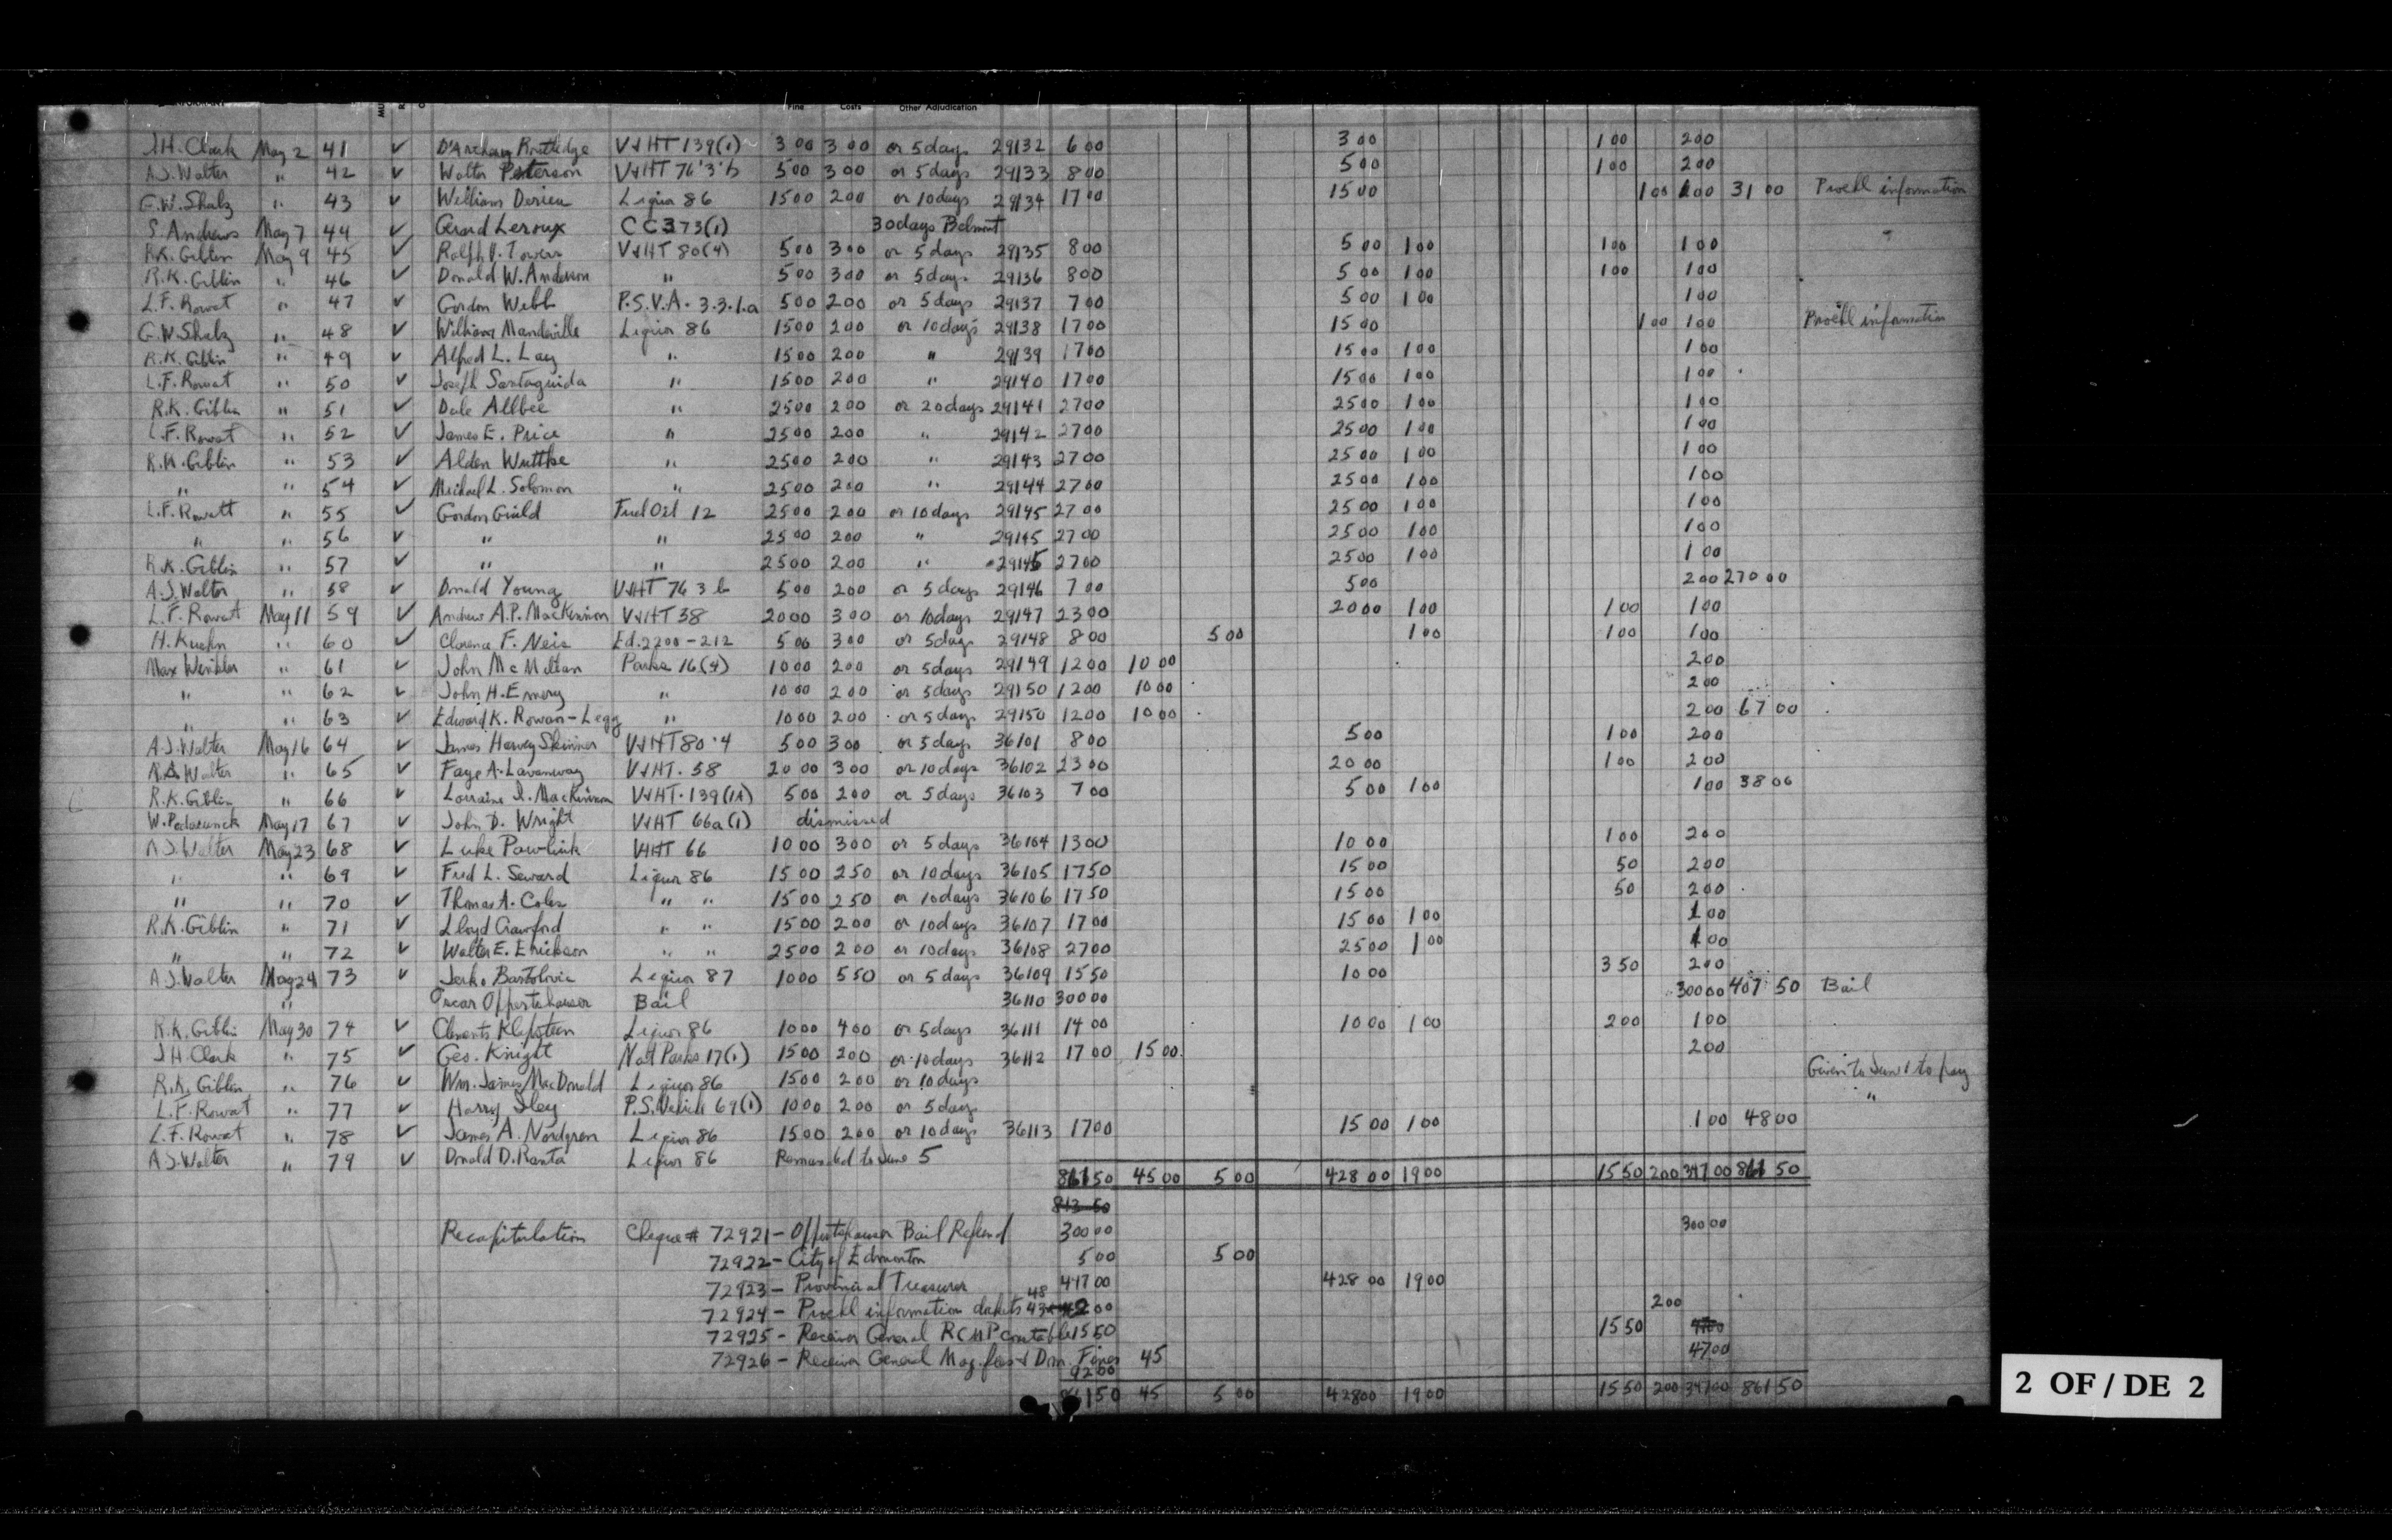 INFORMANT Fine Costs Other Adjudication
J.H. Clark May 2 41 ✓ D'Archay Routledge V&HT 139(1) 3 00 3 00 or 5 days 29132 6 00 3 00 1 00 2 00
A.J. Walter " 42 ✓ Walter Peterson V&HT 76'3'b 5 00 3 00 or 5 days 29133 8 00 5 00 1 00 2 00
G.W. Shulz " 43 ✓ William Derieu Liquor 86 15 00 2 00 or 10 days 29134 17 00 15 00 1 00 1 00 31 00 Proehl information
S. Andrews May 7 44 ✓ Gerard Leroux CC 373(1) 30 days Belmont
R.K. Giblin May 9 45 ✓ Ralph V. Towers V&HT 80(4) 5 00 3 00 or 5 days 29135 8 00 5 00 1 00 1 00 1 00
R.K. Giblin " 46 ✓ Donald W. Anderson " 5 00 3 00 or 5 days 29136 8 00 5 00 1 00 1 00 1 00
L.F. Rowat " 47 ✓ Gordon Webb P.S.V.A. 3.3.1.a 5 00 2 00 or 5 days 29137 7 00 5 00 1 00 1 00
G.W. Shulz " 48 ✓ William Mandeville Liquor 86 15 00 2 00 or 10 days 29138 17 00 15 00 1 00 1 00 Proehl information
R.K. Giblin " 49 ✓ Alfred L. Lay " 15 00 2 00 " 29139 17 00 15 00 1 00 1 00
L.F. Rowat " 50 ✓ Joseph Santaguida " 15 00 2 00 " 29140 17 00 15 00 1 00 1 00
R.K. Giblin " 51 ✓ Dale Allbee " 25 00 2 00 or 20 days 29141 27 00 25 00 1 00 1 00
L.F. Rowat " 52 ✓ James E. Price " 25 00 2 00 " 29142 27 00 25 00 1 00 1 00
R.K. Giblin " 53 ✓ Alden Wuttke " 25 00 2 00 " 29143 27 00 25 00 1 00 1 00
" " 54 ✓ Michael L. Solomon " 25 00 2 00 " 29144 27 00 25 00 1 00 1 00
L.F. Rowatt " 55 ✓ Gordon Guild Fuel Oil 12 25 00 2 00 or 10 days 29145 27 00 25 00 1 00 1 00
" " 56 ✓ " " 25 00 2 00 " 29145 27 00 25 00 1 00 1 00
R.K. Giblin " 57 ✓ " " 25 00 2 00 " 29145 27 00 25 00 1 00 1 00
A.J. Walter " 58 ✓ Donald Young V&HT 76 3 b 5 00 2 00 or 5 days 29146 7 00 5 00 2 00 270 00
L.F. Rowat May 11 59 ✓ Andrew A.P. MacKinnon V&HT 58 20 00 3 00 or 10 days 29147 23 00 20 00 1 00 1 00 1 00
H. Kuehn " 60 ✓ Clarence F. Neis Ed. 2200-212 5 00 3 00 or 5 days 29148 8 00 5 00 1 00 1 00 1 00
Max Winkler " 61 ✓ John McMillan Parks 16(4) 10 00 2 00 or 5 days 29149 12 00 10 00 2 00
" " 62 ✓ John H. Emery " 10 00 2 00 or 5 days 29150 12 00 10 00 2 00
" " 63 ✓ Edward K. Rowan-Legg " 10 00 2 00 or 5 days 29150 12 00 10 00 2 00 67 00
A.J. Walter May 16 64 ✓ James Harvey Skinner V&HT 80.4 5 00 3 00 or 5 days 36101 8 00 5 00 1 00 2 00
Walter " 65 ✓ Faye A. Lavanway V&HT. 58 20 00 3 00 or 10 days 36102 23 00 20 00 1 00 2 00
R.K. Giblin " 66 ✓ Lorraine I. MacKinnon V&HT. 139 5 00 2 00 or 5 days 36103 7 00 5 00 1 00 1 00 38 00
W. May 17 67 ✓ John D. Wright V&HT 66a(1) dismissed
A.J. Walter May 23 68 ✓ Luke Pawlink V&HT 66 10 00 3 00 or 5 days 36104 13 00 10 00 1 00 2 00
" " 69 ✓ Fred L. Seward Liquor 86 15 00 2 50 or 10 days 36105 17 50 15 00 50 2 00
" " 70 ✓ Thomas A. Coles " " 15 00 2 50 or 10 days 36106 17 50 15 00 50 2 00
R.K. Giblin " 71 ✓ Lloyd Crawford " " 15 00 2 00 or 10 days 36107 17 00 15 00 1 00 1 00
" " 72 ✓ Walter E. Erickson " " 25 00 2 00 or 10 days 36108 27 00 25 00 1 00 1 00
A.J. Walter May 24 73 ✓ Jerko Bartolovic Liquor 87 10 00 5 50 or 5 days 36109 15 50 10 00 3 50 2 00
" Oscar Offertshauser Bail 36110 300 00 300 00 407 50 Bail
R.K. Giblin May 30 74 ✓ Clements Klapstein Liquor 86 10 00 4 00 or 5 days 36111 14 00 10 00 1 00 2 00 1 00
J.H. Clark " 75 ✓ Geo. Knight Nat Parks 17(1) 15 00 2 00 or 10 days 36112 17 00 15 00 2 00
R.K. Giblin " 76 ✓ Wm. James MacDonald Liquor 86 15 00 2 00 or 10 days Given to June 1 to pay
L.F. Rowat " 77 ✓ Harry Sley P.S. Vehicle 69(1) 10 00 2 00 or 5 days "
L.F. Rowat " 78 ✓ James A. Nordgren Liquor 86 15 00 2 00 or 10 days 36113 17 00 15 00 1 00 1 00 48 00
A.J. Walter " 79 ✓ Donald D. Ranta Liquor 86 Remanded to June 5
861 50 45 00 5 00 428 00 19 00 15 50 2 00 347 00 861 50
813 50
Recapitulation Cheque # 72921 - Offertshauser Bail Refund 300 00 300 00
72922 - City of Edmonton 5 00 5 00
72923 - Provincial Treasurer 447 00 428 00 19 00
72924 - Proehl information dockets 43 48 2 00 2 00
72925 - Receiver General RCMP constable 15 50 15 50 47 00
72926 - Receiver General Mag. fees & Dom. Fines 92 00 45 47 00
861 50 45 5 00 428 00 19 00 15 50 2 00 347 00 861 50
2 OF / DE 2